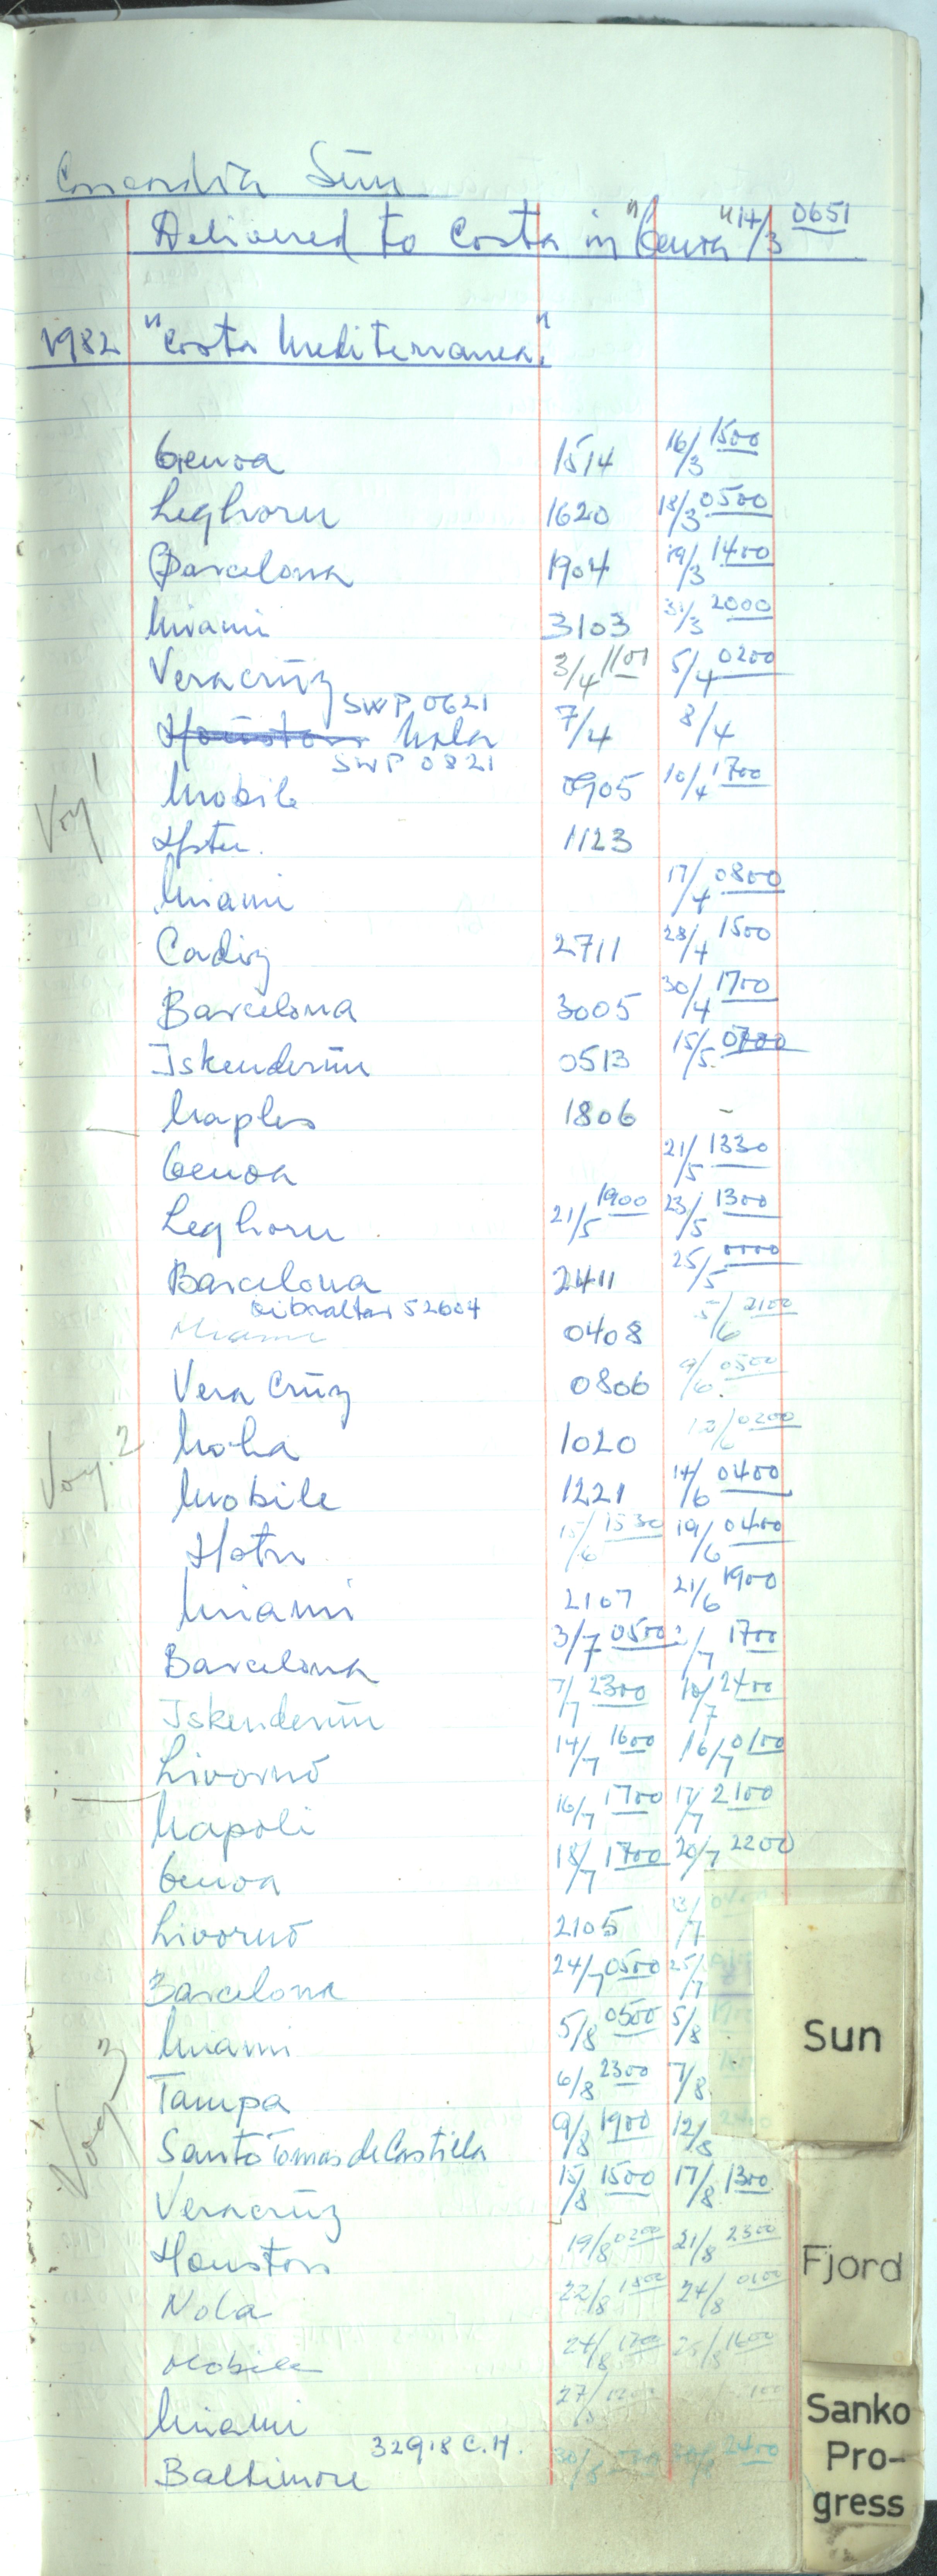 Concordia Sun
Delivered to Costa in "Genoa" 14/3 0651
1982 "Costa Mediterranea"
Genoa 1514 16/3 1500
Leghorn 1620 18/3 0500
Barcelona 1904 19/3 1400
Miami 3103 31/3 2000
Veracruz 3/4 1100 5/4 0200
SWP 0621
Houston Nola 7/4 8/4
SWP 0821
Voy 1
Mobile 0905 10/4 1700
Hstn. 1123
Miami 17/4 0800
Cadiz 2711 28/4 1500
Barcelona 3005 30/4 1700
Iskenderun 0513 15/5 0700
Naples 1806 -
Genoa 21/5 1330
Leghorn 21/5 1900 23/5 1300
Barcelona 2411 25/5 0000
Gibraltar 52604
Miami 0408 5/6 2100
Vera Cruz 0806 9/6 0500
Voy. 2
Nola 1020 12/6 0200
Mobile 1221 14/6 0400
Hstn 15/6 1530 19/6 0400
Miami 2107 21/6 1900
Barcelona 3/7 0500 /7 1700
Iskenderun 7/7 2300 10/7 2400
Livorno 14/7 1600 16/7 0100
Napoli 16/7 1700 17/7 2100
Genoa 18/7 1700 20/7 2200
Livorno 2105 /7
Barcelona 24/7 0500 25/7
Sun
Miami 5/8 0500 5/8
Voy 3
Tampa 6/8 2300 7/8
Santo Tomas de Castilla 9/8 1900 12/8
Veracruz 15/8 1500 17/8 1300
Houston 19/8 0200 21/8 2300
Fjord
Nola 22/8 1800 24/8 0100
Mobile 24/8 1700 25/8 1600
Miami 27/8
32918 C.H.
Baltimore 2400
Sanko
Pro-
gress